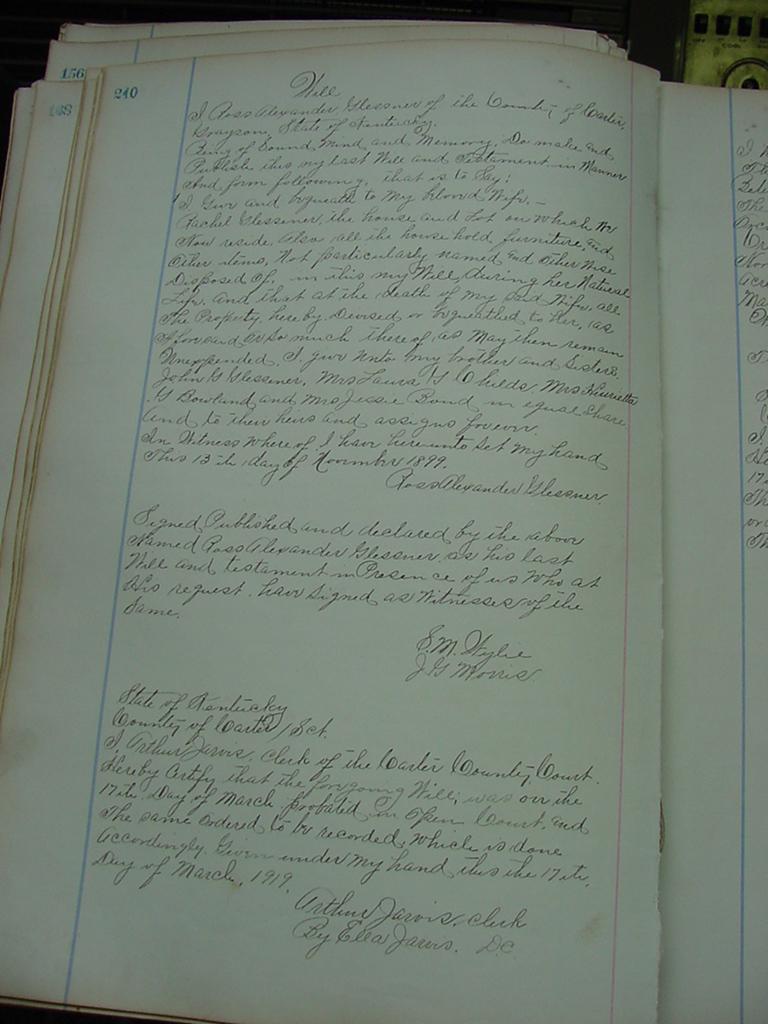 156
168
240
Will
I Ross Alexander Glessner of the County of Carter,
Grayson, State of Kentucky.
Being of Sound, Mind and Memory, Do make and
Publish this my last Will and Testament in Manner
and form following, that is to Say:
I Give and bequeath to My beloved Wife,-
Rachel Glessner, the house and Lot on which We
Now reside, Also all the house hold furniture, and
Other items, Not particularly named and Other Wise
Disposed Of, in this my Will, during her Natural
Life, And that at the death of my said Wife, all
The Property, hereby Devised or bequeathed to her, as
Aforesaid or so much thereof, as May then remain
Unexpended, I give unto my brother and Sisters.
John G Glessner, Mrs Laura G Childs Mrs Henrietta
G Bowland and Mrs Jessie Bond in equal Share
And to their heirs and assigns forever.
In Witness Where of I have here unto Set my hand
This 13 th day of November 1899.
Ross Alexander Glessner.
Signed, Published and declared by the above
Named Ross Alexander Glessner as his last
Will and testament in Presence of us Who at
His request. have signed as Witnesses of the
Same.
S. M. Wylie
J G Morris
State of Kentucky
County of Carter / Sct.
I, Arthur Jarvis, Clerk of the Carter County Court.
Hereby Certify that the forgoing Will; was on the
17 th Day of March probated in Open Court, and
The same Ordered to be recorded, Which is done
Accordingly. Given under My hand, this the 17 th,
Day of March, 1919.
Arthur Jarvis, Clerk
By Ella Jarvis. D.C.